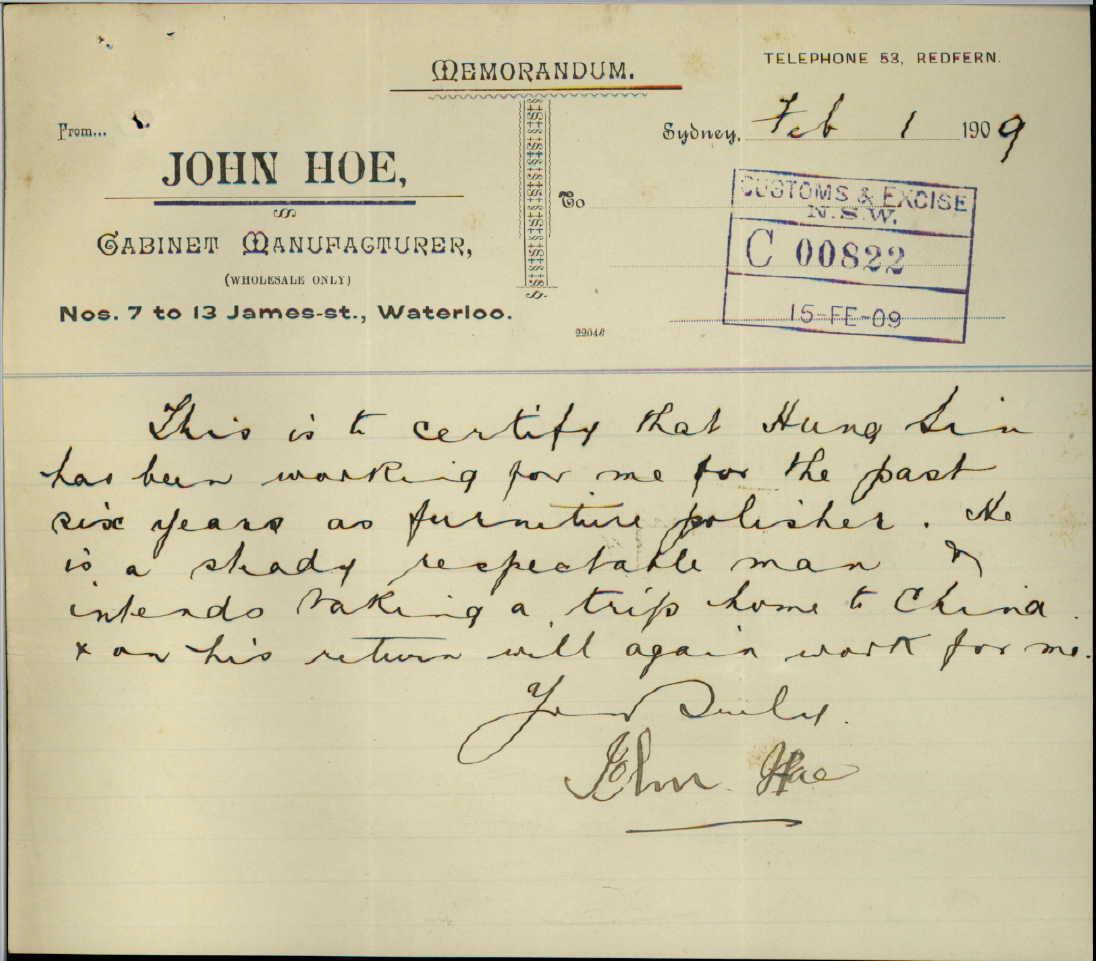 MEMORANDUM.
TELEPHONE 53, REDFERN.
From...
Sydney, Feb 1 1909
JOHN HOE,
To
CABINET MANUFACTURER,
(WHOLESALE ONLY)
Nos. 7 to 13 James-st., Waterloo.
22046
CUSTOMS & EXCISE
N.S.W.
C 00822
15-FE-09
This is to certify that Hung Sin
has been working for me for the past
six years as furniture polisher. He
is a steady respectable man &
intends taking a trip home to China
& on his return will again work for me.
Yours Truly.
John Hoe